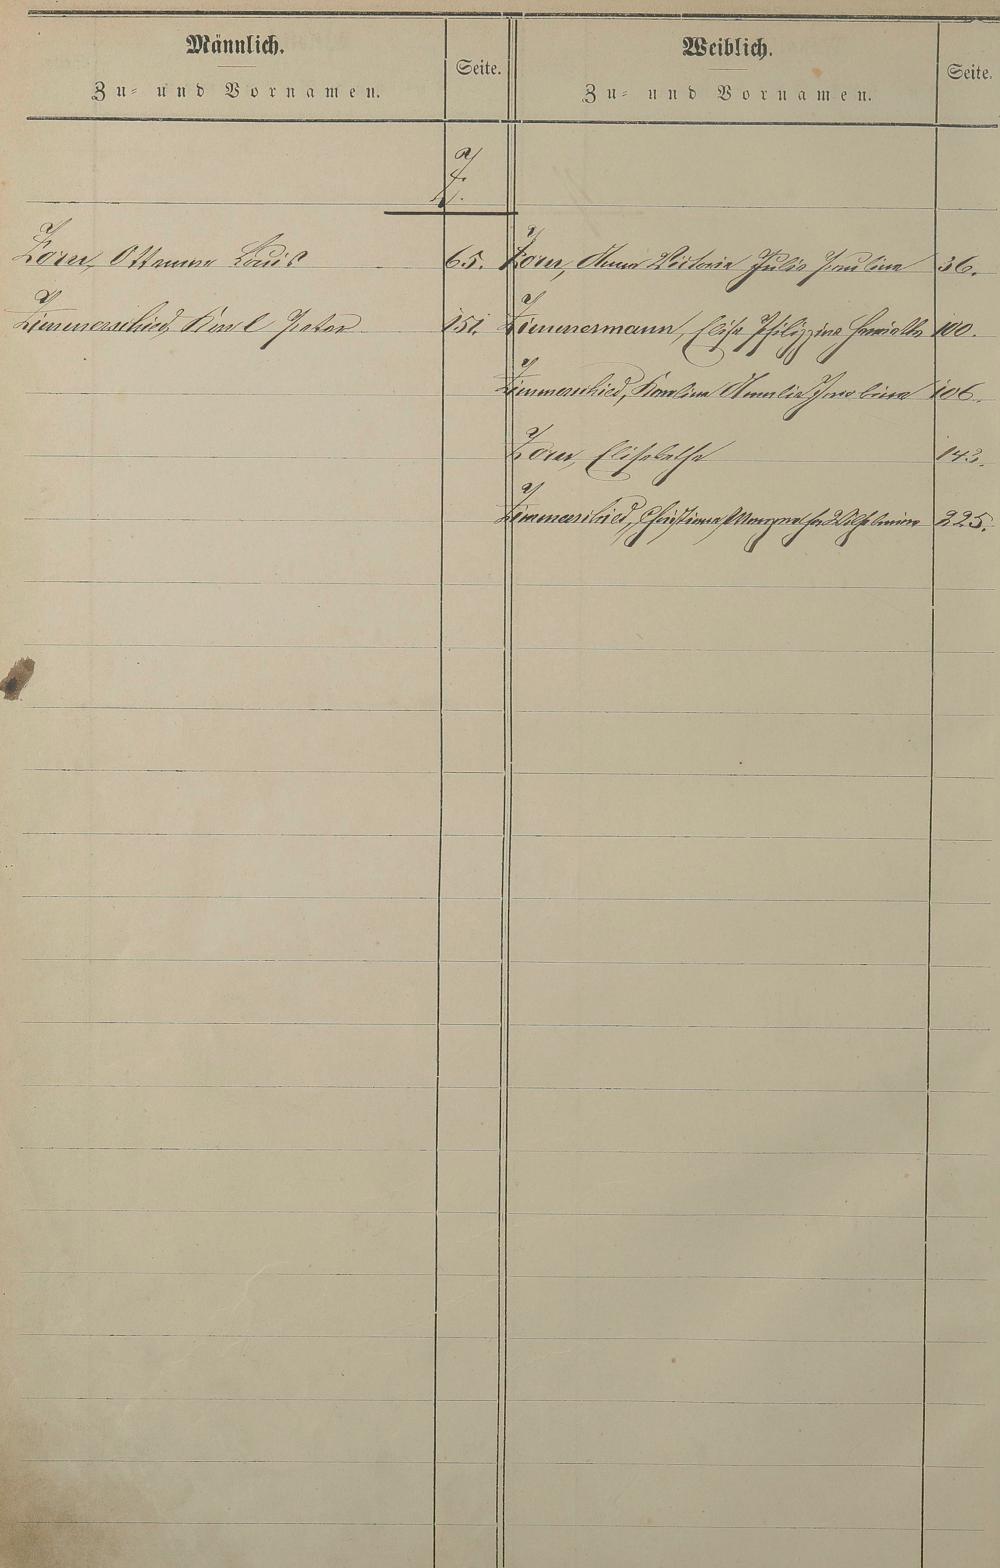 Männlich.
Zu- und Vornamen.
Seite.
Weiblich.
Zu- und Vornamen.
Seite.
Z.
Zorn, Ottomar Louis 65.
Zimmerschied, Karl Peter 151.
Zorn, Anna Victoria Julie Paulina 36.
Zimmermann, Elise Philippine Henriette 100.
Zimmerschied, Karoline Amalie Jacobine 106.
Zorn, Elisabethe 143.
Zimmerschied, Christiane Margarethe Wilhelmine 225.